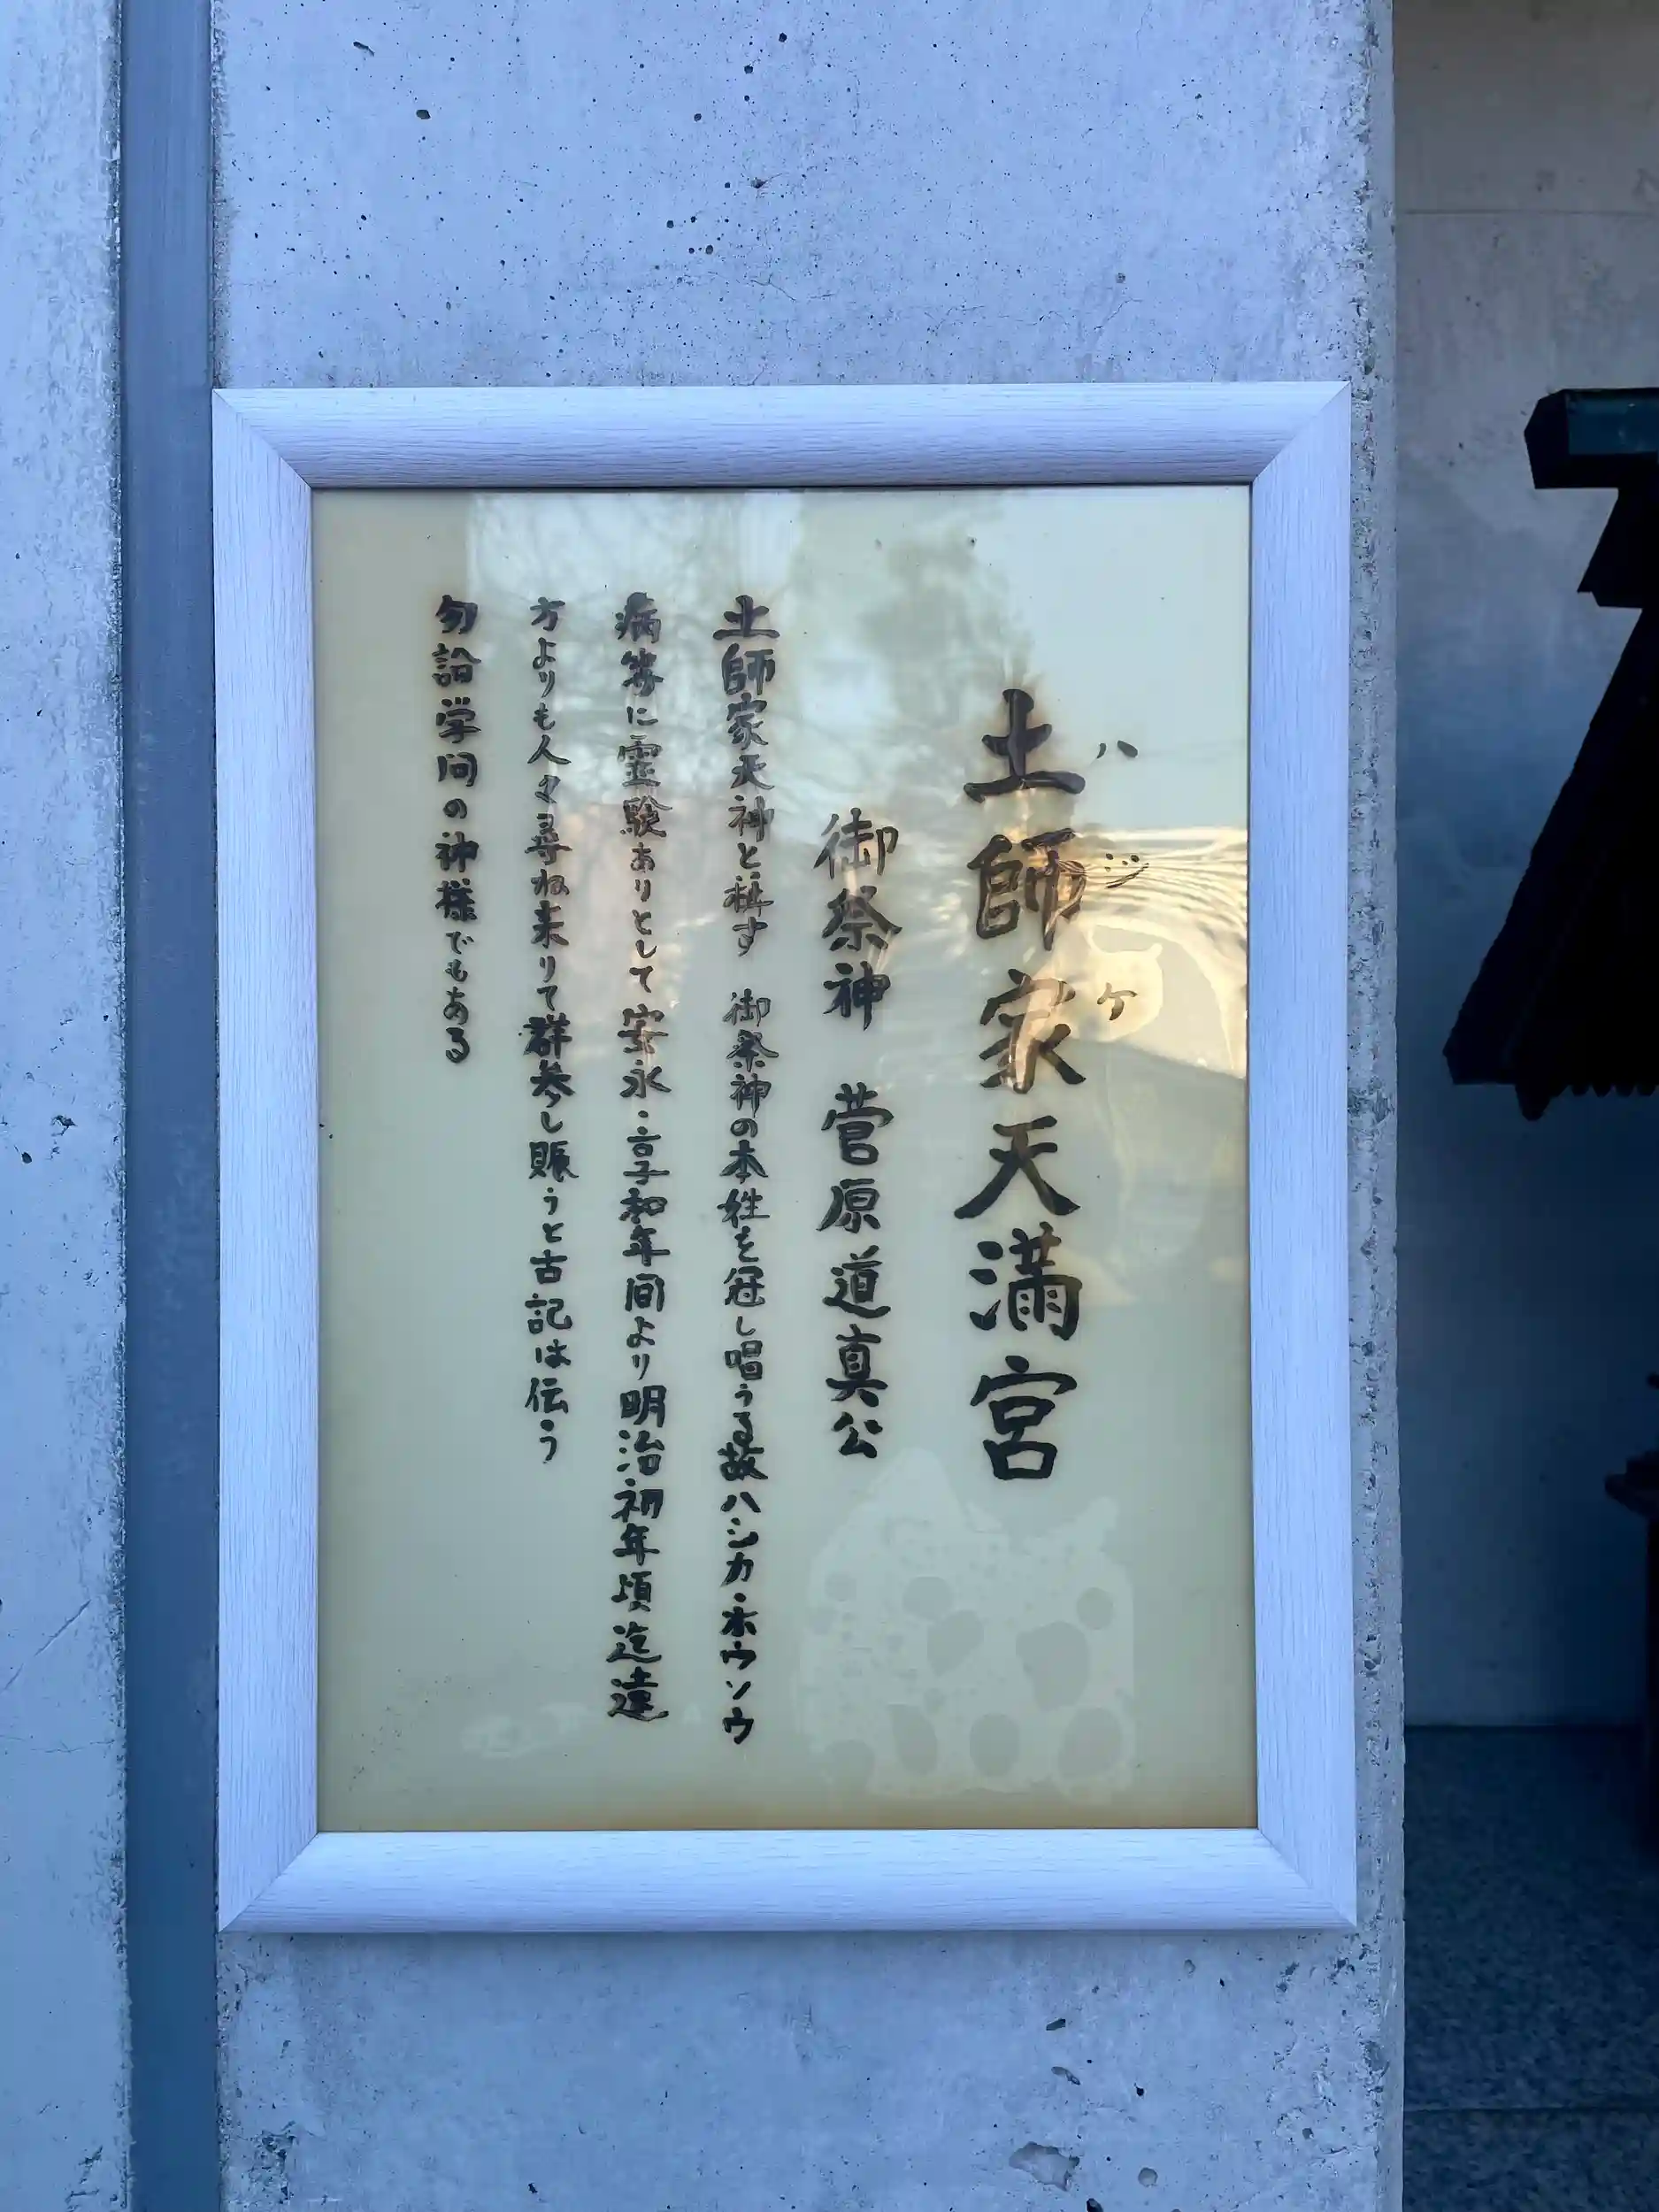 土師家天満宮
ハジケ
御祭神 菅原道真公
土師家天神と称す 御祭神の本姓を冠し唱うる故ハシカ・ホウソウ
病等に霊験ありとして安永・享和年間より明治初年頃迄遠
方よりも人々尋ね来りて群参し賑うと古記は伝う
勿論学問の神様でもある